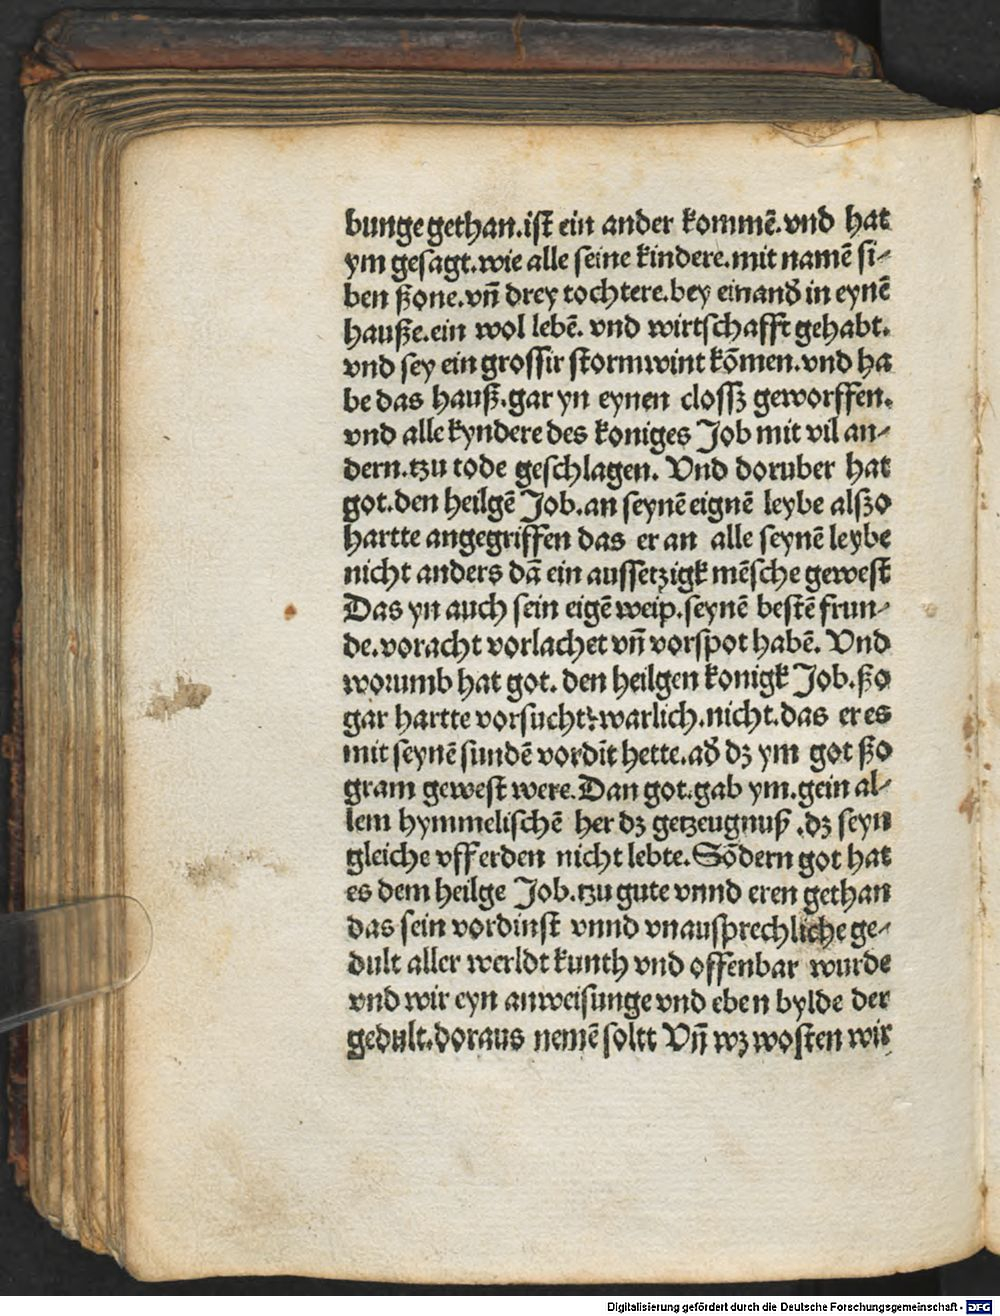 bunge gethan.ist ein ander kommē.vnd hat
ym gesagt.wie alle seine kindere.mit namē si⸗
ben ßone.vñ drey tochtere.bey einanđ in eynē
hauße.ein wol lebē. vnd wirtschafft gehabt.
vnd sey ein grossir stormwint kōmen.vnd ha
be das hauß.gar yn eynen clossz geworffen.
vnd alle kyndere des koniges Job mit vil an⸗
dern.tzu tode geschlagen. Vnd doruber hat
got.den heilgē Job.an seynē eignē leybe alßo
hartte angegriffen das er an alle seynē leybe
nicht anders dā ein aussetzigk mēsche gewest
Das yn auch sein eigē weip.seynē bestē frun⸗
de.voracht vorlachet vñ vorspot habē. Vnd
worumb hat got. den heilgen konigk Job.ßo
gar hartte vorsucht?warlich.nicht.das er es
mit seynē sundē vordīt hette.ađ dz ym got ßo
gram gewest were.Dan got.gab ym.gein al⸗
lem hymmelischē her dz getzeugnuß .dz seyn
gleiche vff erden nicht lebte.Sōdern got hat
es dem heilge Job.tzu gute vnnd eren gethan
das sein vordinst vnnd vnausprechliche ge⸗
dult aller werldt kunth vnd offenbar wurde
vnd wir eyn anweisunge vnd eben bylde der
gedult.doraus nemē soltt Vñ wz wosten wir
Digitalisierung gefördert durch die Deutsche Forschungsgemeinschaft - DFG